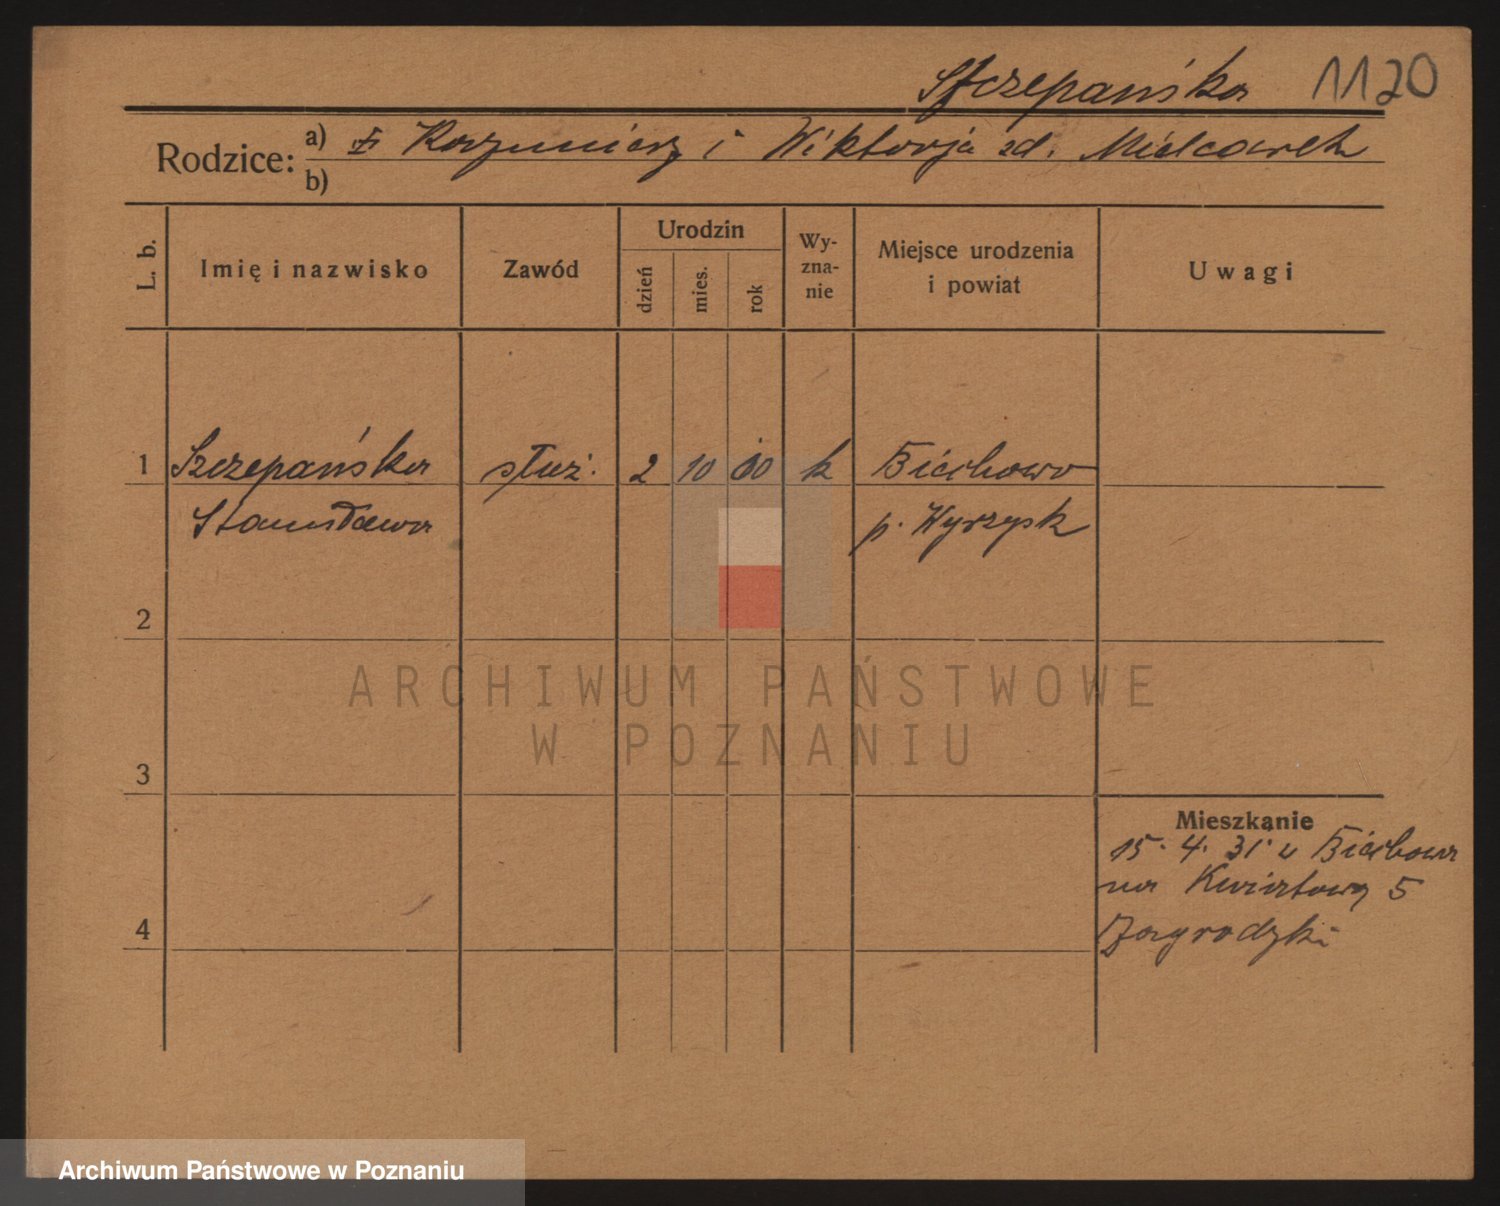 Szczepańska 1120
Rodzice: a) Kazimierz i Wiktorja zd. Mielcarek
b)
L. b. Imię i nazwisko Zawód Urodzin dzień mies. rok Wy-zna-nie Miejsce urodzenia i powiat Uwagi
1 Szczepańska służ. 2 10 00 k Biechowo
Stanisława p. Wyrzysk
2
3
Mieszkanie
15. 4. 31
na Kwiatową 5
4 Zagrodzki
ARCHIWUM PAŃSTWOWE
W POZNANIU
Archiwum Państwowe w Poznaniu